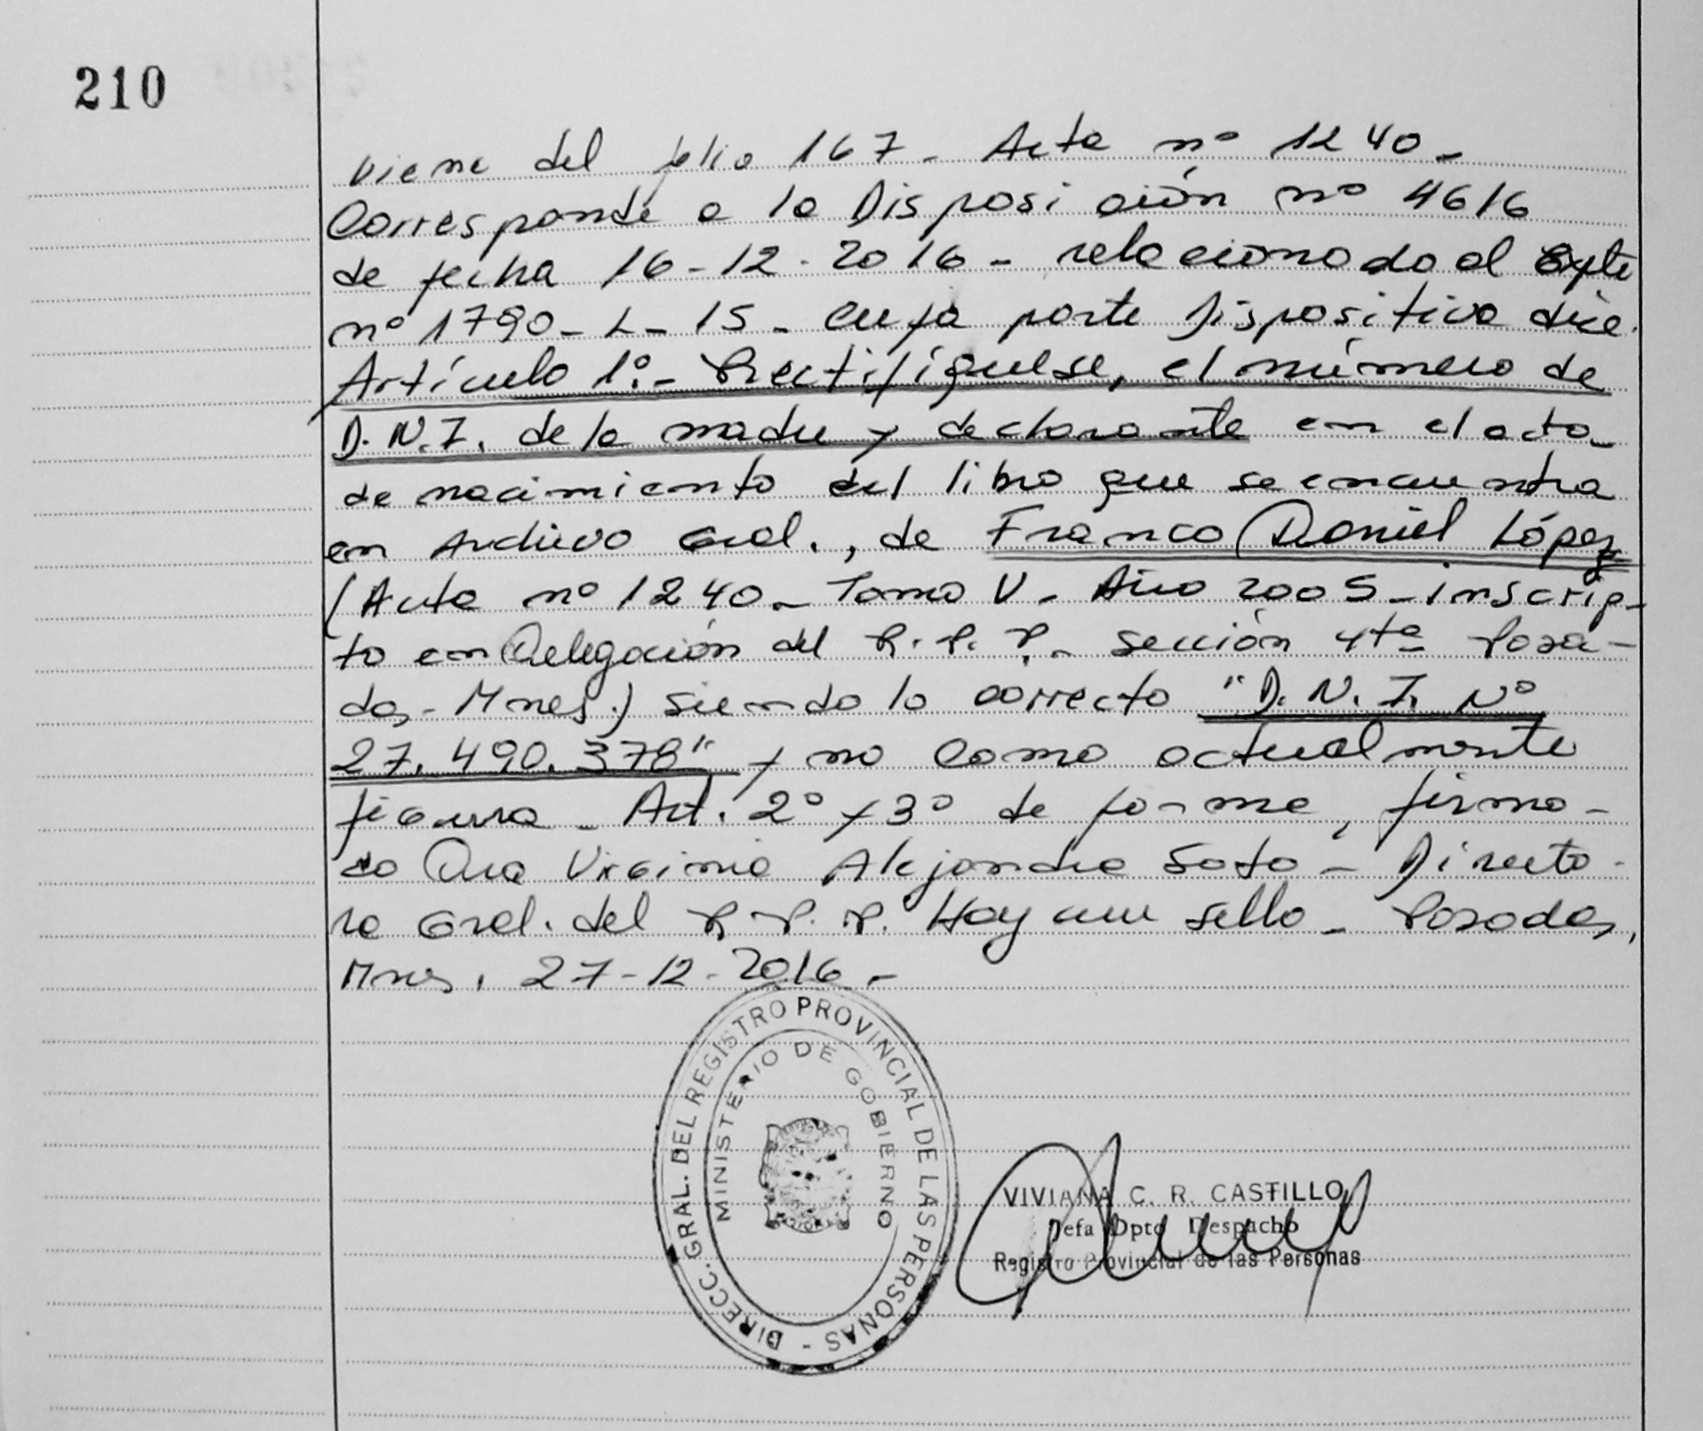 210
Viene del folio 167 - Acta nº 1240 -
Corresponde a la Disposición nº 4616
de fecha 16-12-2016 - relacionado al Expte
nº 1790 - L - 15 - cuya parte Dispositiva dice.
Artículo 1º.- Rectifíquese, el número de
D.N.I. de la madre y declarante en el acta
de nacimiento del libro que se encuentra
en Archivo Gral., de Franco Daniel López
(Acta nº 1240 - Tomo V - Año 2005 - inscrip-
to en Delegación del R.P.P. - Sección 4ta Posa-
das - Mnes.) siendo lo correcto "D.N.I. Nº
27.490.378" y no como actualmente
figura - Art. 2º y 3º de forma, firma-
do Dra Virginia Alejandra Soto - Directo-
ra Gral. del R.P.P. Hay un sello - Posadas,
Mnes, 27-12-2016 -
DIRECC. GRAL. DEL REGISTRO PROVINCIAL DE LAS PERSONAS -
MINISTERIO DE GOBIERNO
VIVIANA C. R. CASTILLO
Jefa Dpto Despacho
Registro Provincial de las Personas